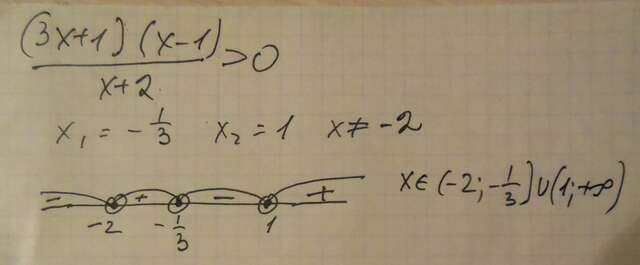 (3x+1)(x-1)
x+2
>0
x₁ = -1/3 x₂ = 1 x ≠ -2
- + - +
-2 -1/3 1
x∈(-2;-1/3]∪(1;+∞)